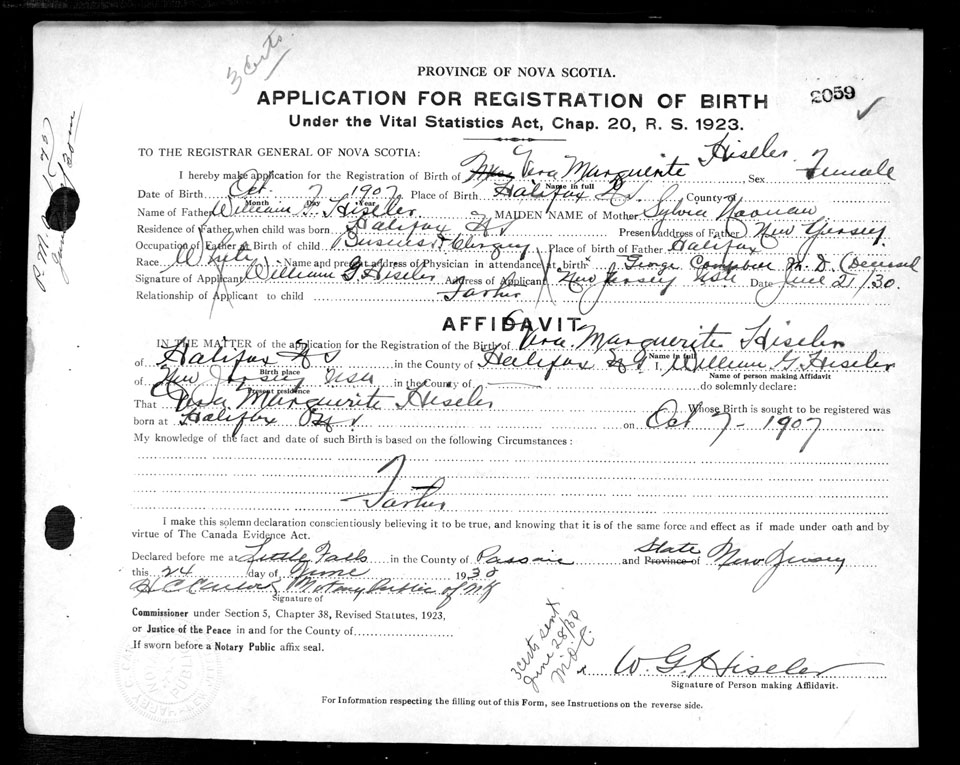 3 Certs.
PROVINCE OF NOVA SCOTIA.
APPLICATION FOR REGISTRATION OF BIRTH
2059
Under the Vital Statistics Act, Chap. 20, R. S. 1923.
TO THE REGISTRAR GENERAL OF NOVA SCOTIA:
I hereby make application for the Registration of Birth of Vera Marguerite Hiseler. Sex Female
Name in full
Date of Birth Oct. 7 1907 Place of Birth Halifax N.S. County of
Month Day Year
Name of Father William G. Hiseler MAIDEN NAME of Mother Sylvia Noonan
Residence of Father when child was born Halifax N S Present address of Father New Jersey
Occupation of Father at Birth of child Business & Clergy Place of birth of Father Halifax
Race White Name and present address of Physician in attendance at birth George Campbell M. D. (Deceased
Signature of Applicant William G. Hiseler Address of Applicant New Jersey USA Date June 21/30.
Relationship of Applicant to child Father
AFFIDAVIT
IN THE MATTER of the application for the Registration of the Birth of Vera Marguerite Hiseler
Name in full
of Halifax N S in the County of Halifax N S I, William G. Hiseler
Birth place
Name of person making Affidavit
of New Jersey USA in the County of do solemnly declare:
Present residence
That Vera Marguerite Hiseler Whose Birth is sought to be registered was
born at Halifax N S on Oct 7 - 1907
My knowledge of the fact and date of such Birth is based on the following Circumstances:
Father
I make this solemn declaration conscientiously believing it to be true, and knowing that it is of the same force and effect as if made under oath and by
virtue of The Canada Evidence Act.
Declared before me at Little Falls in the County of Passaic and Province of State New Jersey
this 24 day of June 1930
Notary Public of NJ
Signature of
Commissioner under Section 5, Chapter 38, Revised Statutes, 1923,
or Justice of the Peace in and for the County of
If sworn before a Notary Public affix seal.
3 certs sent
June 28/30
W. G. Hiseler
Signature of Person making Affidavit.
For Information respecting the filling out of this Form, see Instructions on the reverse side.